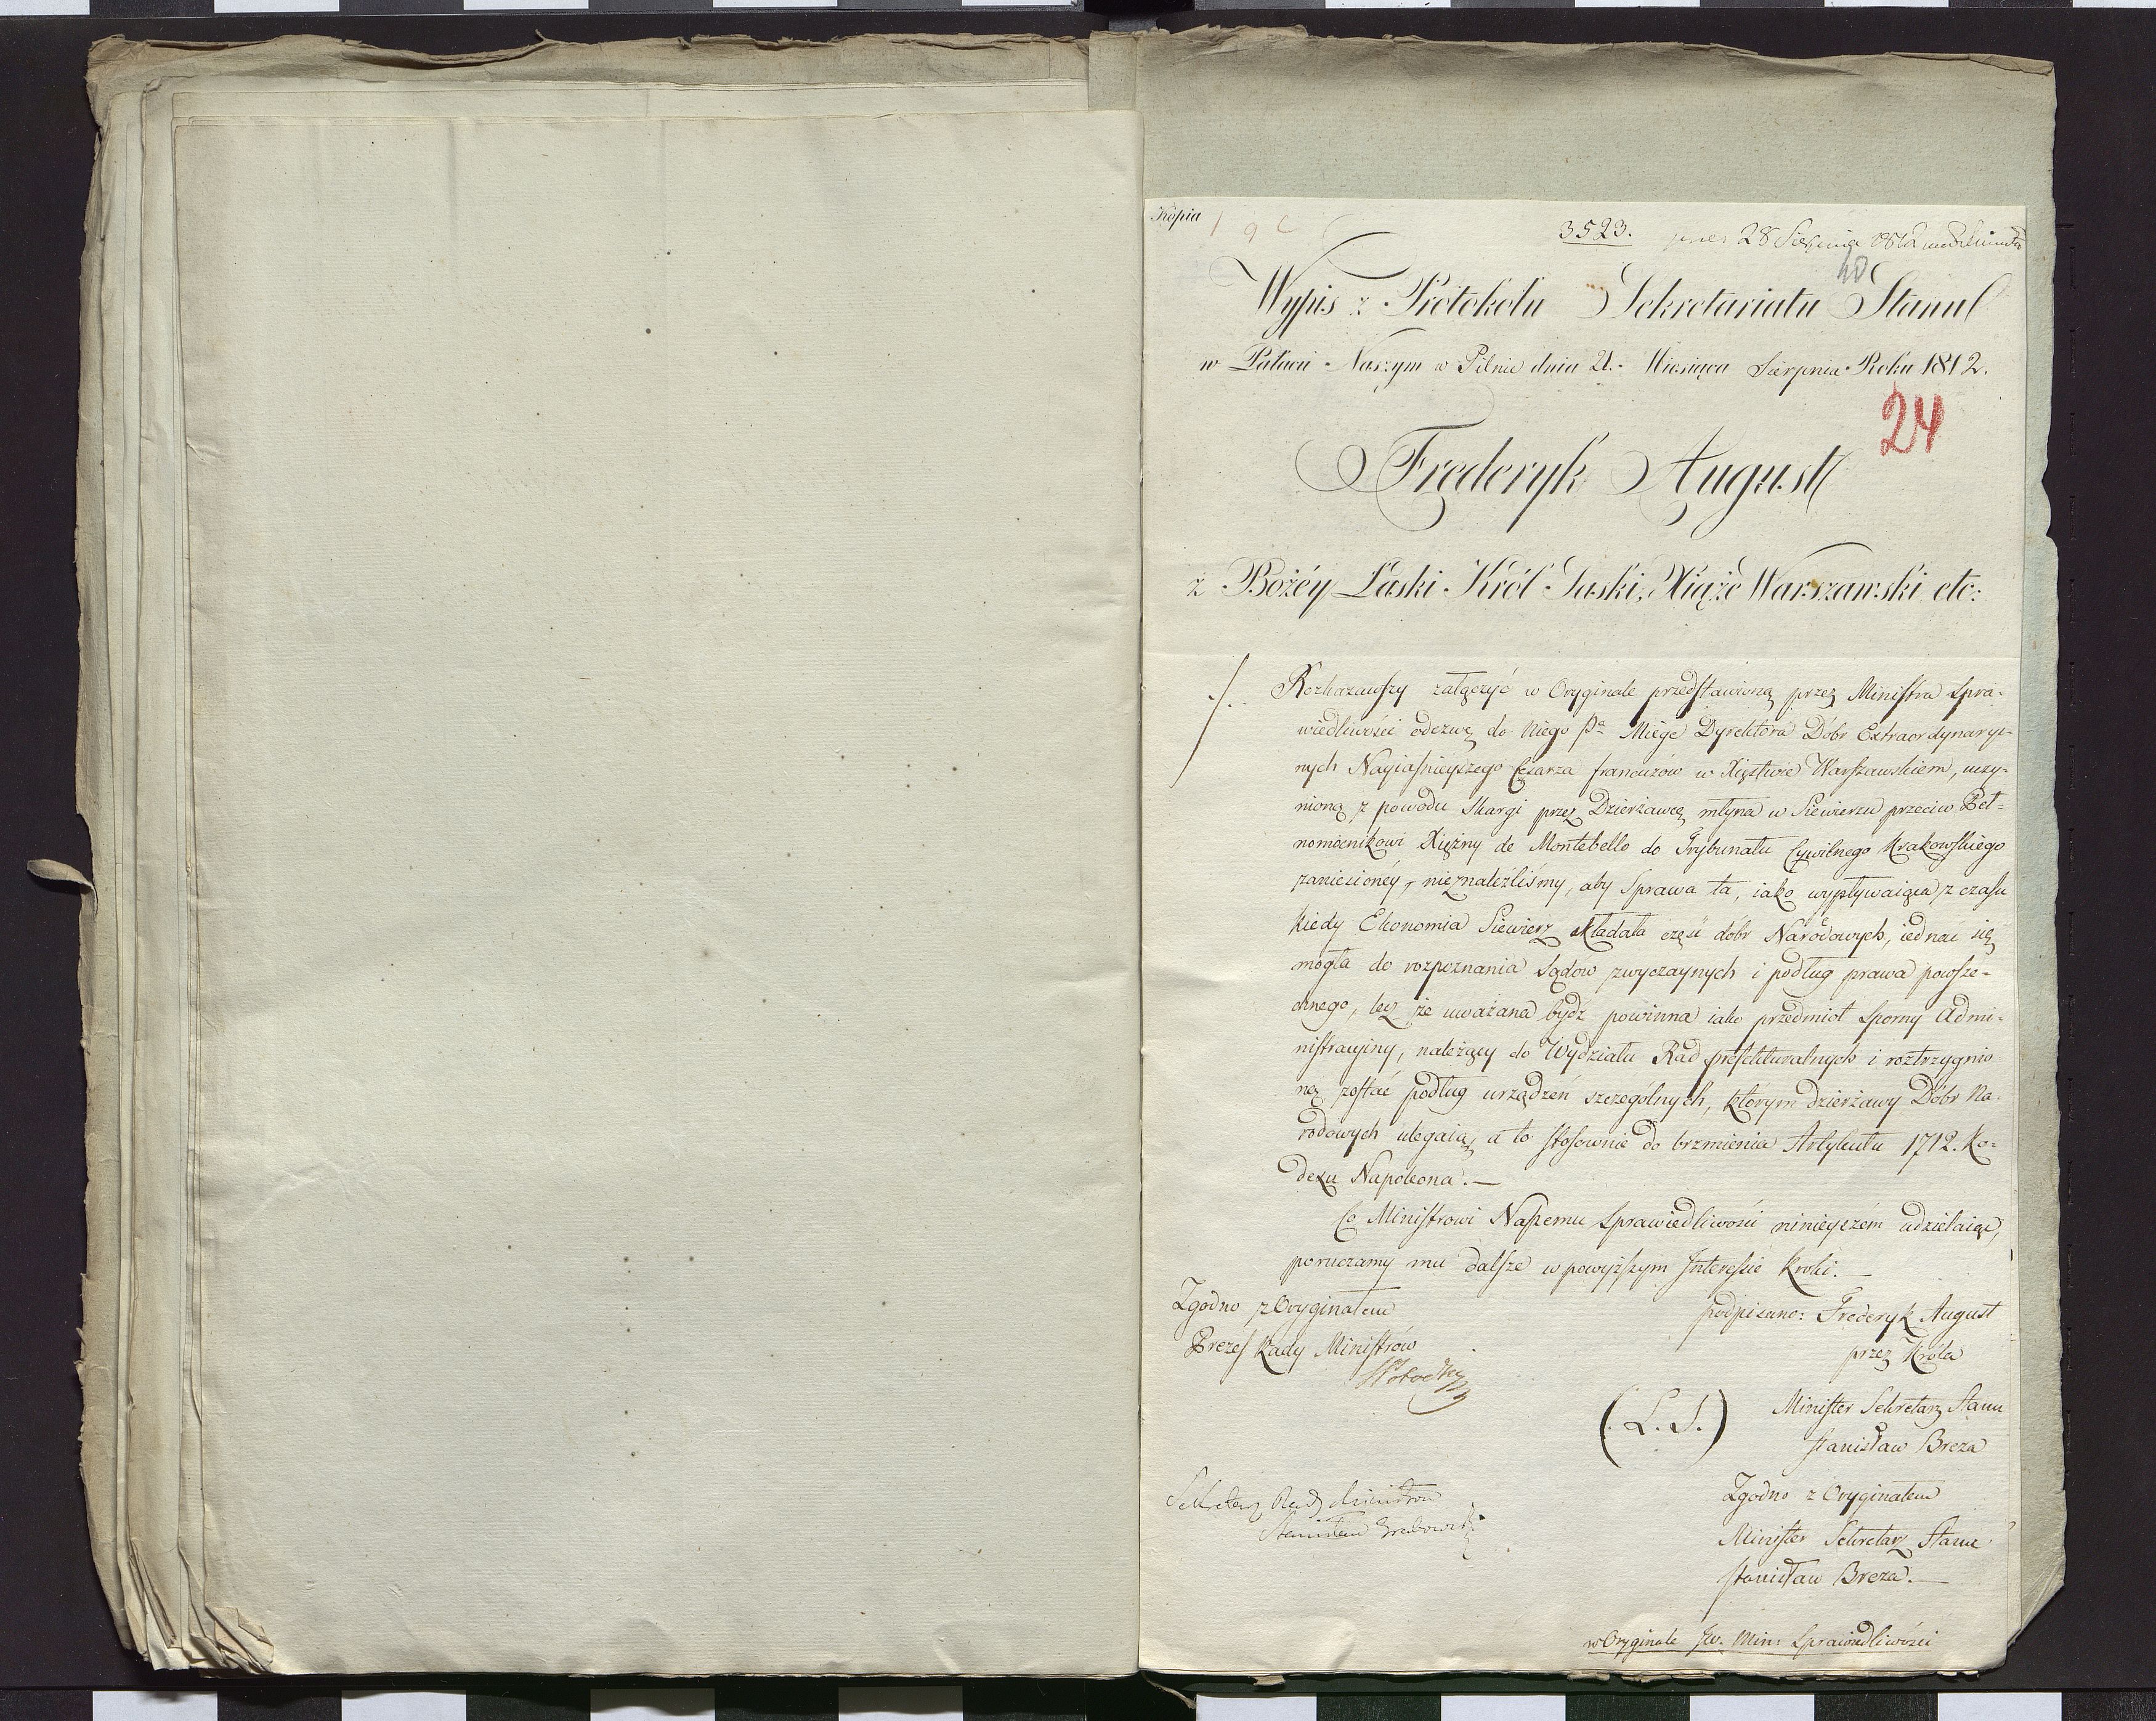 Kopia
3523. 28 Sierpnia 1812
40
Wypis z Protokołu Sekretariatu Stanu
w Pałacu Naszym w Pilnic dnia 21. Miesiąca Sierpnia Roku 1812.
24
Frederyk August
z Bożéy Łaski Król Saski, Xiąże Warszawski etc:
Rozkazawszy załączyć w Oryginale przedstawioną przez Ministra Spra-
wiedliwości odezwę do Niego Pa Miége Dyrektora Dóbr Extraordynaryi-
nych Nayiaśnieyszego Cesarza francuzów w Xięstwie Warszawskiem, uczy-
nioną z powodu Skargi przez Dzierżawcę młyna w Siewierzu przeciw Peł-
nomocnikowi Xiężny de Montebello do Trybunału Cywilnego Krakowskiego
zaniesionéy, nieznaleźliśmy, aby Sprawa ta, iako wypływaiąca z czasu
kiedy Ekonomia Siewierz składała część dóbr Narodowych, iednac się
mogła do rozpoznania Sądów zwyczaynych i podług prawa powsze-
chnego, lecz że uważana bydź powinna iako przedmiot Sporny Admi-
nistracyiny, należący do Wydziału Rad prefekturalnych i roztrzygnio-
ną zostać podług urządzeń szczególnych, którym dzierżawy Dóbr Na-
rodowych ulegaią, a to stosownie do brzmienia Artykułu 1712. Ko-
dexu Napoleona. —
Co Ministrowi Naszemu Sprawiedliwości ninieyszém udzielaiąc,
poruczamy mu dalsze w powyższym Interessie kroki. —
Zgodno z Oryginałem
Prezes Rady Ministrów
podpisano: Frederyk August
przez Króla
(L. S.)
Minister Sekretarz Stanu
Stanisław Breza
Sekretarz Rady Ministrów
Stanisław Grabowski
Zgodno z Oryginałem
Minister Sekretarz Stanu
Stanisław Breza. —
w Oryginale JW. Min: Sprawiedliwości